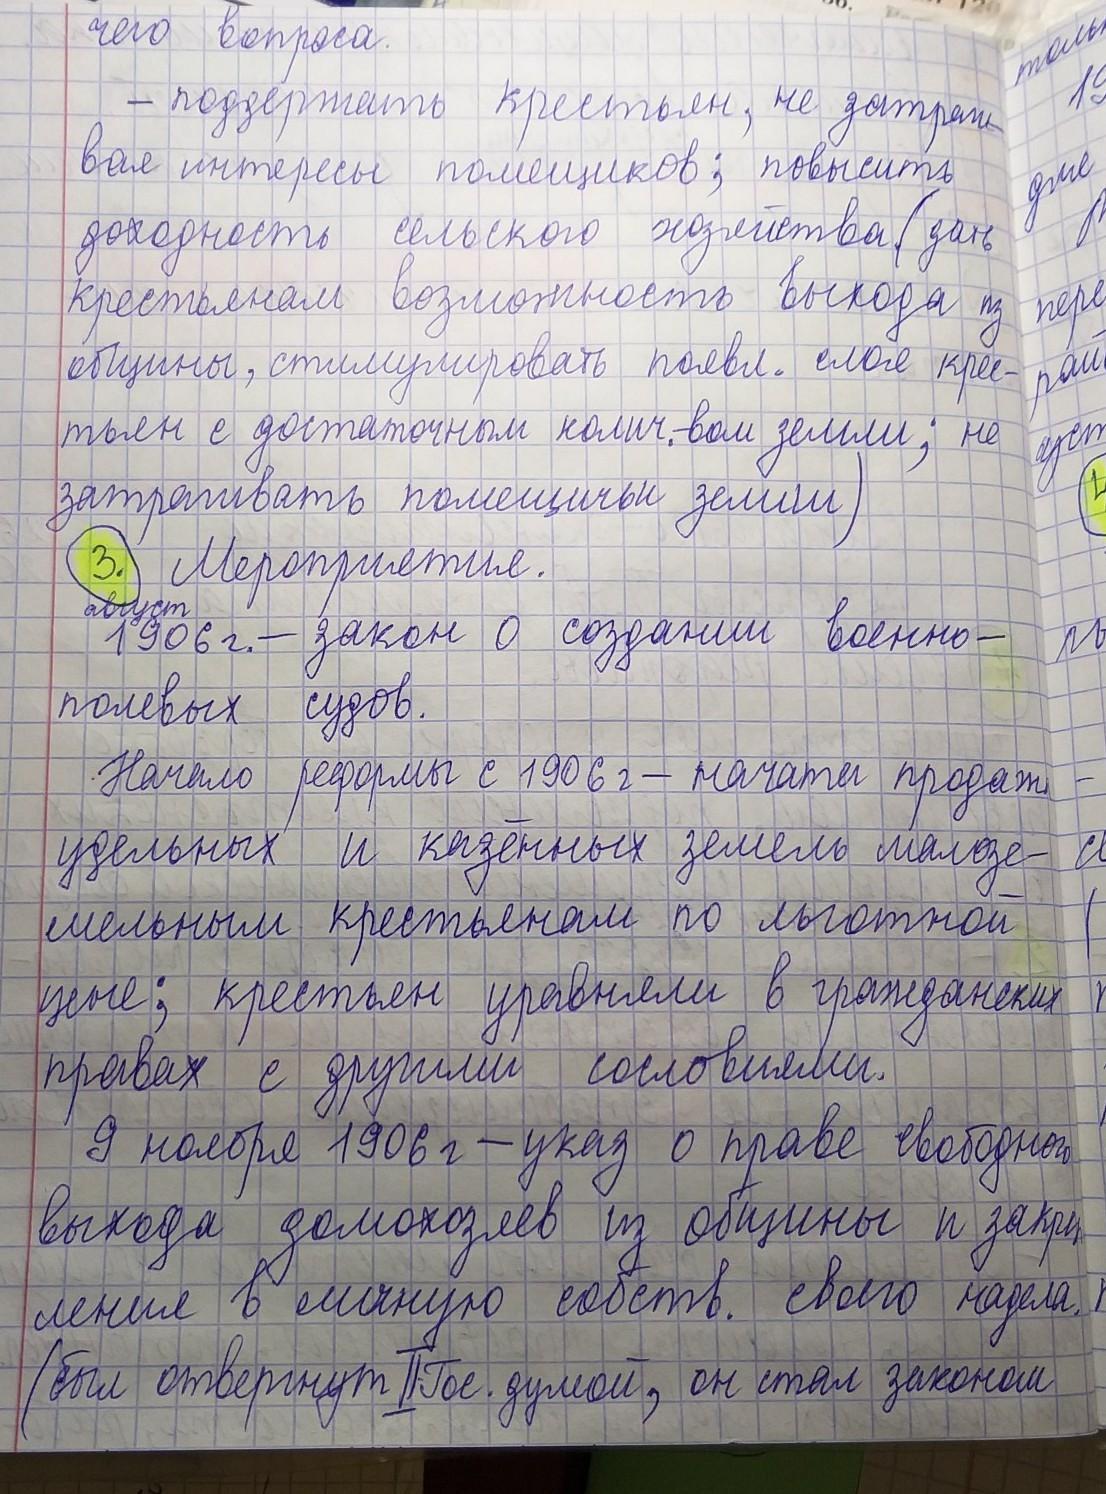 чего вопроса.
– поддержать крестьян, не затраги-
вая интересы помещиков; повысить
доходность сельского хозяйства (дать
крестьянам возможность выхода из
общины, стимулировать появл. слоя крес-
тьян с достаточным колич.-вом земли; не
затрагивать помещичьи земли)
3. Мероприятия.
август
1906 г. – закон о создании военно-
полевых судов.
Начало реформы с 1906 г – начата продажа
удельных и казённых земель малозе-
мельным крестьянам по льготной
цене; крестьян уравняли в гражданских
правах с другими сословиями.
9 ноября 1906 г – указ о праве свободного
выхода домохозяев из общины и закреп
ления в личную собств. своего надела.
(был отвергнут II Гос. думой, он стал законом